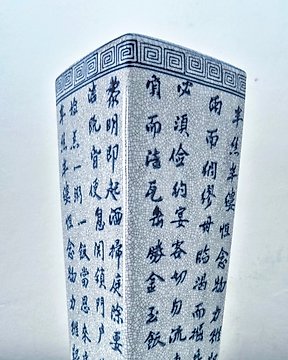 半絲半縷恒念物力維
雨而綢繆毋臨渴而掘
必須儉約宴客切勿流
質而潔瓦缶勝金玉飯
黎明即起洒掃庭除要
潔既昏便息關鎖門戶
檢點一粥一飯當思來
半絲半縷恒念物力維